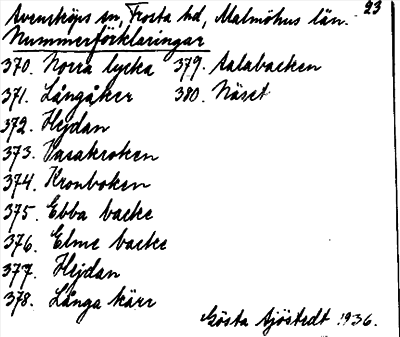 23
Svensköps sn, Frosta hd, Malmöhus län.
Nummerförklaringar
370. Norra lycka 379. Aalabacken
371. Långåker 380. Näset
372. Hejdan
373. Vasakroken
374. Kronboken
375. Ebba backe
376. Elme backe
377. Hejdan
378. Långa kärr
Gösta Sjöstedt 1936.